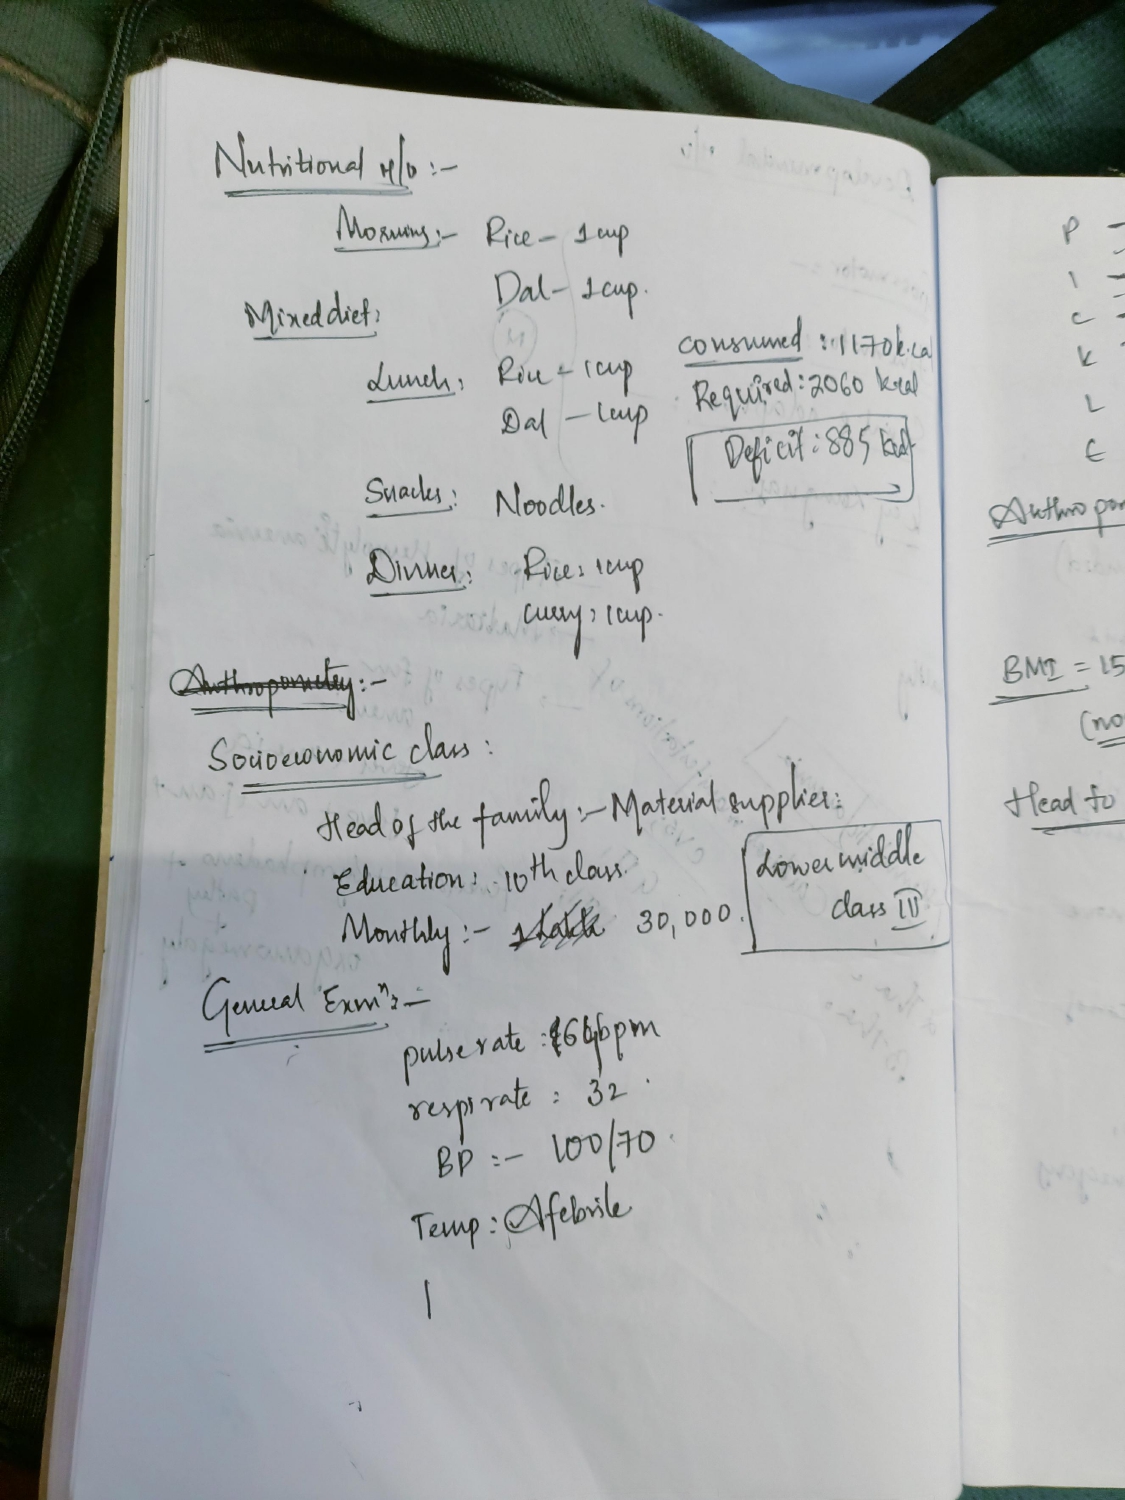 Nutritional H/o :-
Morning :- Rice - 1 cup
Dal - 1 cup.
Mixed diet:
Lunch: Rice - 1 cup
Dal - 1 cup
consumed : 1170 k.cal
Required : 2060 kcal
Deficit : 885 kcal
Snacks: Noodles.
Dinner: Rice: 1 cup
curry: 1 cup.
Anthropometry :-
Socioeconomic class :
Head of the family :- Material supplier:
Education: 10th class.
Monthly :- 30,000.
Lower middle
class III
General Exmⁿ :-
pulse rate : bpm
resp rate : 32
BP :- 100/70
Temp : Afebrile
P -
I -
C -
K -
L
E
BMI = 15
Head to